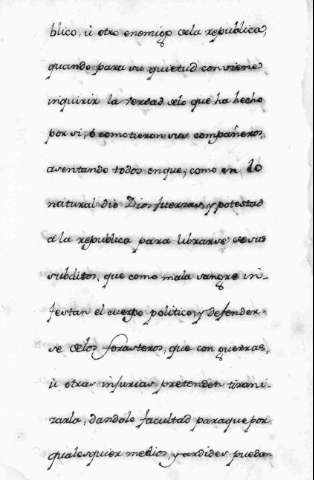 blico, ù otro enemigo dela republica,
quando para su quietud conviene
inquirir la verdad delo que ha hecho
por si, ò cometieron sus compañeros,
asentando todos en que, como en lo
natural dio Dios fuerzas, y potestad
a la republica para librarse de sus
subditos, que como mala sangre in-
festan el cuerpo politico y defender-
se de los forasteros, que con guerras,
ù otras injurias pretenden tirani-
zarla, dandole facultad para que por
qualesquier medios, y ardides puedan